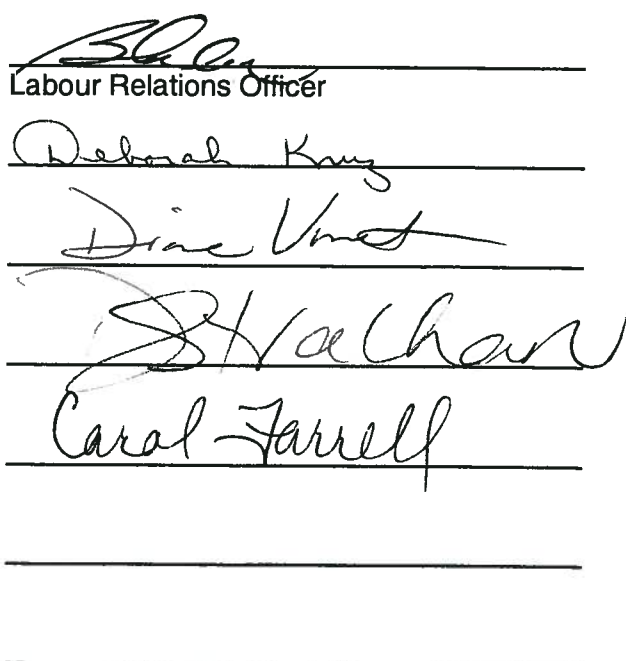 Labour Relations Officer
Deborah
Diane
Strachan
Carol Farrell